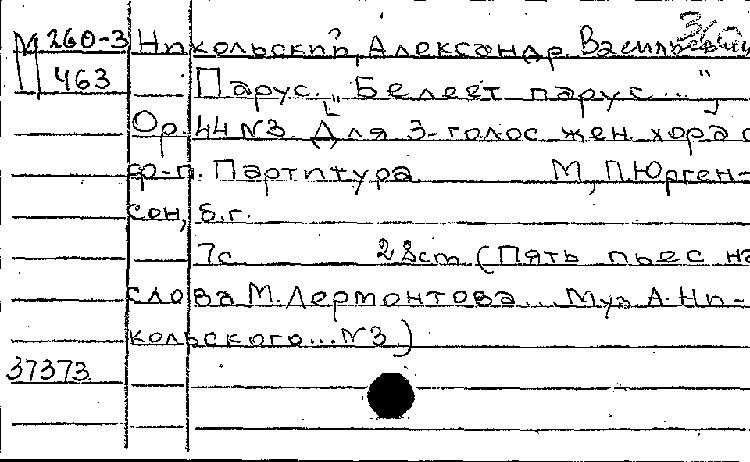 М 260-3 Никольский, Александр Васильевич
463 Парус. ["Белеет парус..."]
Op. 44 №3. Для 3-голос. жен. хора с
ф-п. Партитура М., П. Юрген-
сон, б.г.
7с 28см (Пять пьес на
слова М. Лермонтова... Муз А. Ни-
кольского... №3)
37373